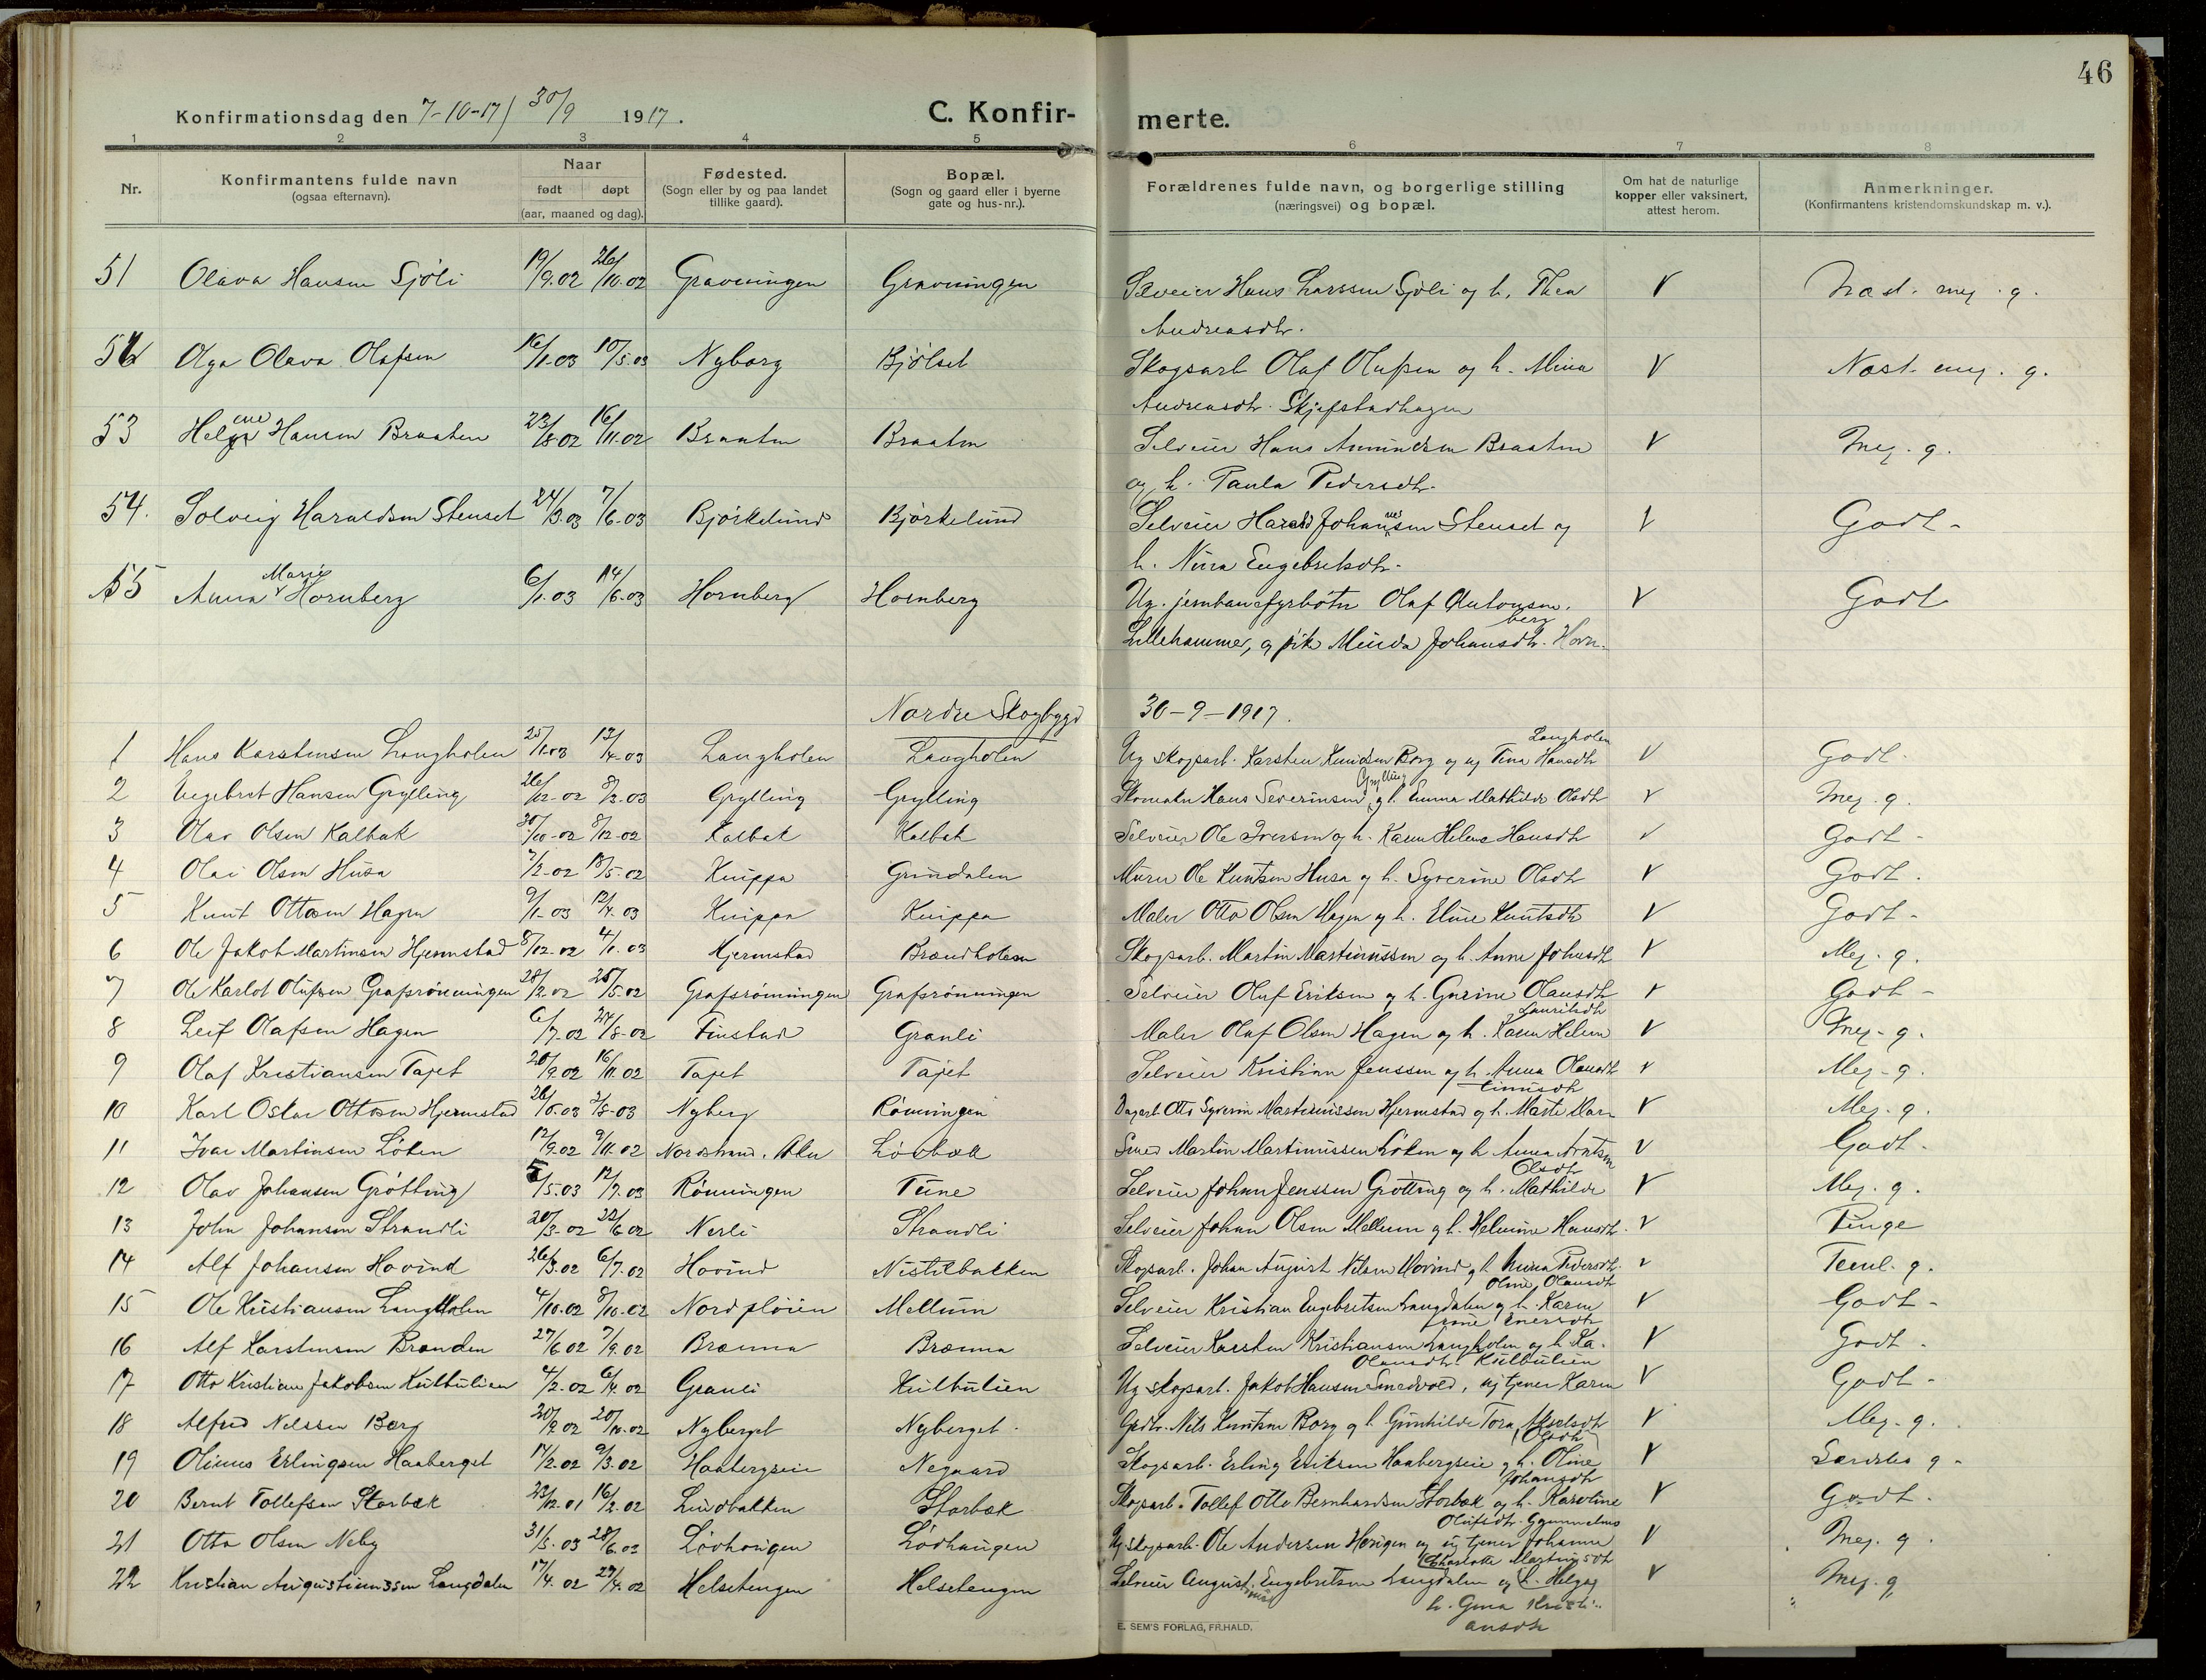 46
Konfirmationsdag den 7-10-17 / 30/9 1917.
C. Konfir- merte.
1 2 3 4 5 6 7 8
Nr.
Konfirmantens fulde navn
(ogsaa efternavn).
Naar
født døpt
(aar, maaned og dag).
Fødested.
(Sogn eller by og paa landet
tillike gaard).
Bopæl.
(Sogn og gaard eller i byerne
gate og hus-nr.).
Forældrenes fulde navn, og borgerlige stilling
(næringsvei) og bopæl.
Om hat de naturlige
kopper eller vaksinert,
attest herom.
Anmerkninger.
(Konfirmantens kristendomskundskap m. v.).
51 Olava Hansen Sjøli 19/9.02 26/10.02 Gravningen Gravningen Selveier Hans Larssen Sjøli og h. Thea V Næst. meg. g.
Andreasdtr.
52 Olga Olava Olafsen 16/1.03 10/5.03 Nyborg Bjølset Skogsarb Olaf Olufsen og h. Mina V Næst. meg. g.
Andreasdtr. Skjefstadhagen
53 Helene Hansen Braaten 23/8.02 16/11.02 Braaten Braaten Selveier Hans Amundsen Braaten V Meg. g.
og h. Paula Pedersdtr.
54. Solveig Haraldsen Stenset 24/3.03 7/6.03 Bjørkelund Bjørkelund Selveier Harald Johannessen Stenset og V Godt -
h. Nina Engebretsdtr.
55 Anna Marie Hornberg 6/1.03 14/6.03 Hornberg Hornberg Ug. jernbanefyrbøter Olaf Antonsen. V Godt
Lillehammer, og pike Minda Johansdtr. Hornberg
Nordre Skogbygd 30-9-1917.
1 Hans Karstensen Langholen 25/1.03 13/4.03 Langholen Langholen Ug skogsarb. Karsten Knudsen Borg og ug Tina Hansdtr Langholen V Godt.
2 Engebret Hansen Grylling 26/12-02 8/2.03 Grylling Grylling Skomaker Hans Severinsen Grylling og h. Emma Mathilde Olsdtr V Meg. g.
3 Olav Olsen Kalbak 30/10-02 8/12-02 Kalbak Kalbak Selveier Ole Iversen og h. Karen Helene Hansdtr V Godt -
4 Olai Olsen Husa 7/2-02 18/5-02 Knippa Grindalen Murer Ole Knutsen Husa og h. Syverine Olsdtr V Godt.
5 Knut Ottosen Hagen 9/1-03 12/4.03 Knippa Knippa Maler Otto Olsen Hagen og h. Eline Knutsdtr V Godt -
6 Ole Jakob Martinsen Hjermstad 8/12-02 4/1.03 Hjermstad Brændholen Skogsarb. Martin Martinussen og h. Anne Johnsdtr V Meg. g.
7 Ole Karlot Olufsen Grafsrønningen 28/2.02 25/5.02 Grafsrønningen Grafsrønningen Selveier Oluf Eriksen og h. Gurine Olausdtr V Godt -
8 Leif Olafsen Hagen 6/7.02 24/8-02 Finstad Granli Maler Olaf Olsen Hagen og h. Karen Helene Lauritsdtr V Meg. g.
9 Olaf Kristiansen Tajet 20/9.02 16/11.02 Tajet Tajet Selveier Kristian Jenssen og h. Anna Olausdtr V Meg. g.
10 Karl Oskar Ottosen Hjermstad Nyberg Rønningen Dagarb. Otto Syverin Martinussen Hjermstad og h. Marte Martinusdtr V Meg. g.
11 Ivar Martinsen Løken 12/9.02 9/11.02 Nordstrand. Aker Løvbæk Smed Martin Martinussen Løken og h. Anna Arntsen V Godt.
12 Olav Johansen Grøtting 5/5.03 12/7.03 Rønningen Tune Selveier Johan Jenssen Grøtting og h. Mathilde Olsdtr V Meg. g.
13 John Johansen Strandli 20/3-02 22/6.02 Nerli Strandli Selveier Johan Olsen Mellum og h. Helmine Hansdtr. V Ringe
14 Alf Johansen Hovind 26/3.02 6/7.02 Hovind Nistilbakken Skogsarb. Johan August Nilsen Hovind og h. Anna Pedersdtr. V Teml. g.
15 Ole Kristiansen Langdalen 4/10.02 8/10.02 Nordpløien Mellum Selveier Kristian Engebretsen Langdalen og h. Karen Oline Olausdtr V Godt -
16 Alf Karstensen Brænden 27/6 02 7/9.02 Brænna Brænna Selveier Karsten Kristiansen Langholen og h. Ka- V Godt.
17 Otto Kristian Jakobsen Kulbulien 4/2.02 6/4.02 Granli Kulbulien Ug skogsarb. Jakob Hansen Smedvold, ug tjener Karen Olausdtr Kulbulien V Godt -
18 Alfred Nelssen Borg 20/9.02 20/10.02 Nyberget Nyberget Gjedtr. Nils Knutsen Borg og h. Gunhilde Tora Akselsdtr V Meg. g.
19 Olinus Erlingsen Haaberget 14/2.02 9/3.02 Haabergseie Negaard Skogsarb. Erling Eriksen Haabergseie og h. Oline Olsdtr V Særdeles g -
20 Bernt Tollefsen Storbæk 23/12.01 16/2.02 Lundbakken Storbæk Skogsarb. Tollef Otto Bernhardsen Storbæk og h. Karoline Johansdtr V Godt.
21 Otto Olsen Neby 31/5.03 28/6.03 Løvhaugen Løvhaugen Ug. skogsarb. Ole Andersen Haugen og ug tjener Johanne Olufsdtr. V Meg. g.
22 Kristian Augustinussen Langdalen 17/4.02 27/4.02 Helsetengen Helsetengen Selveier Augustinus Engebretsen Langdalen og h. Helga Charlotte Martinusdtr V Meg. g
h. Gina Kristi-
ansdtr
E. SEM'S FORLAG, FR.HALD.